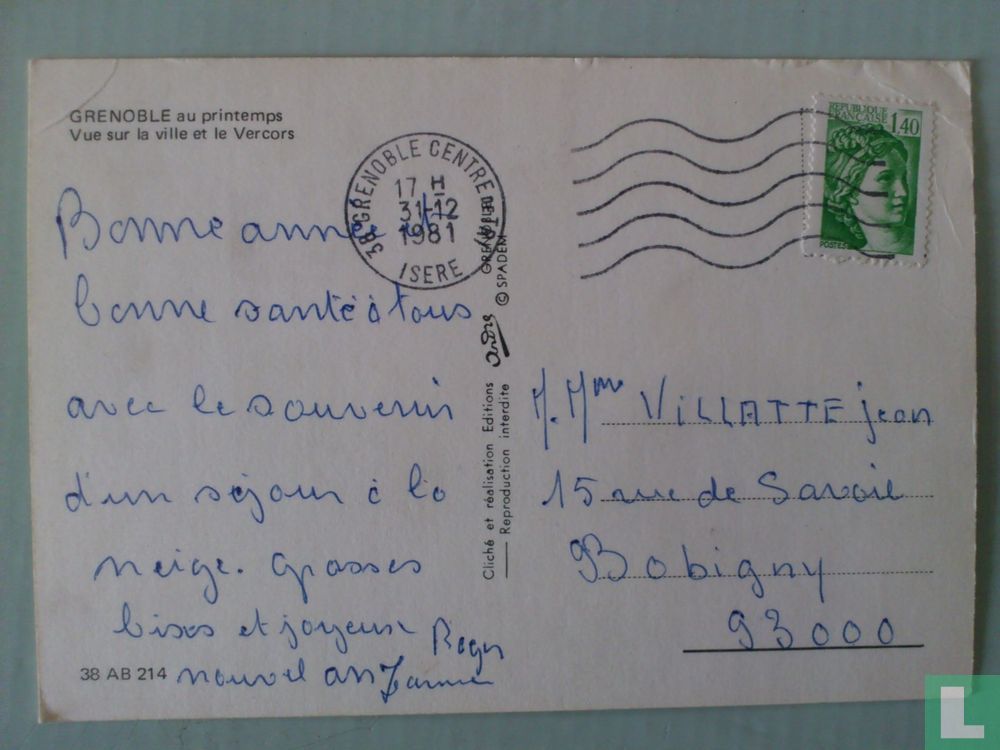 GRENOBLE au printemps
Vue sur la ville et le Vercors
38 GRENOBLE CENTRE
17 H
31-12
1981
ISERE
REPUBLIQUE
FRANCAISE
1,40
POSTES
Bonne année et
bonne santé à tous
avec le souvenir
d'un séjour à la
neige. Grosses
bises et joyeux
nouvel an
Roger
38 AB 214
Cliché et réalisation Editions
Reproduction interdite
André
GRENOBLE
© SPADEM
M. Mme VILLATTE Jean
15 rue de Savoie
Bobigny
93000
L